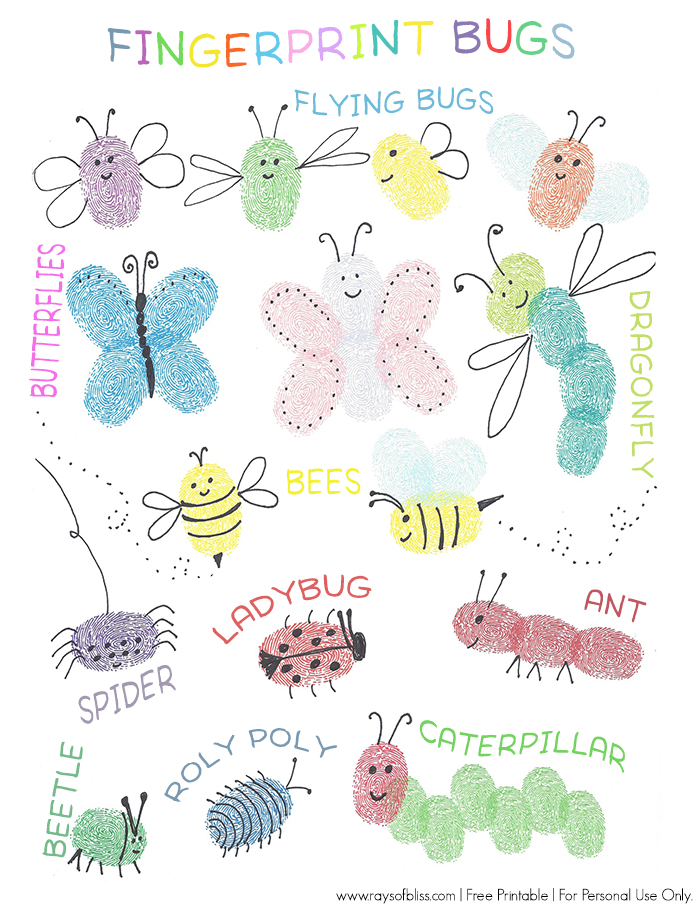 FINGERPRINT BUGS
FLYING BUGS
BUTTERFLIES
DRAGONFLY
BEES
LADYBUG
ANT
SPIDER
CATERPILLAR
ROLY POLY
BEETLE
www.raysofbliss.com | Free Printable | For Personal Use Only.